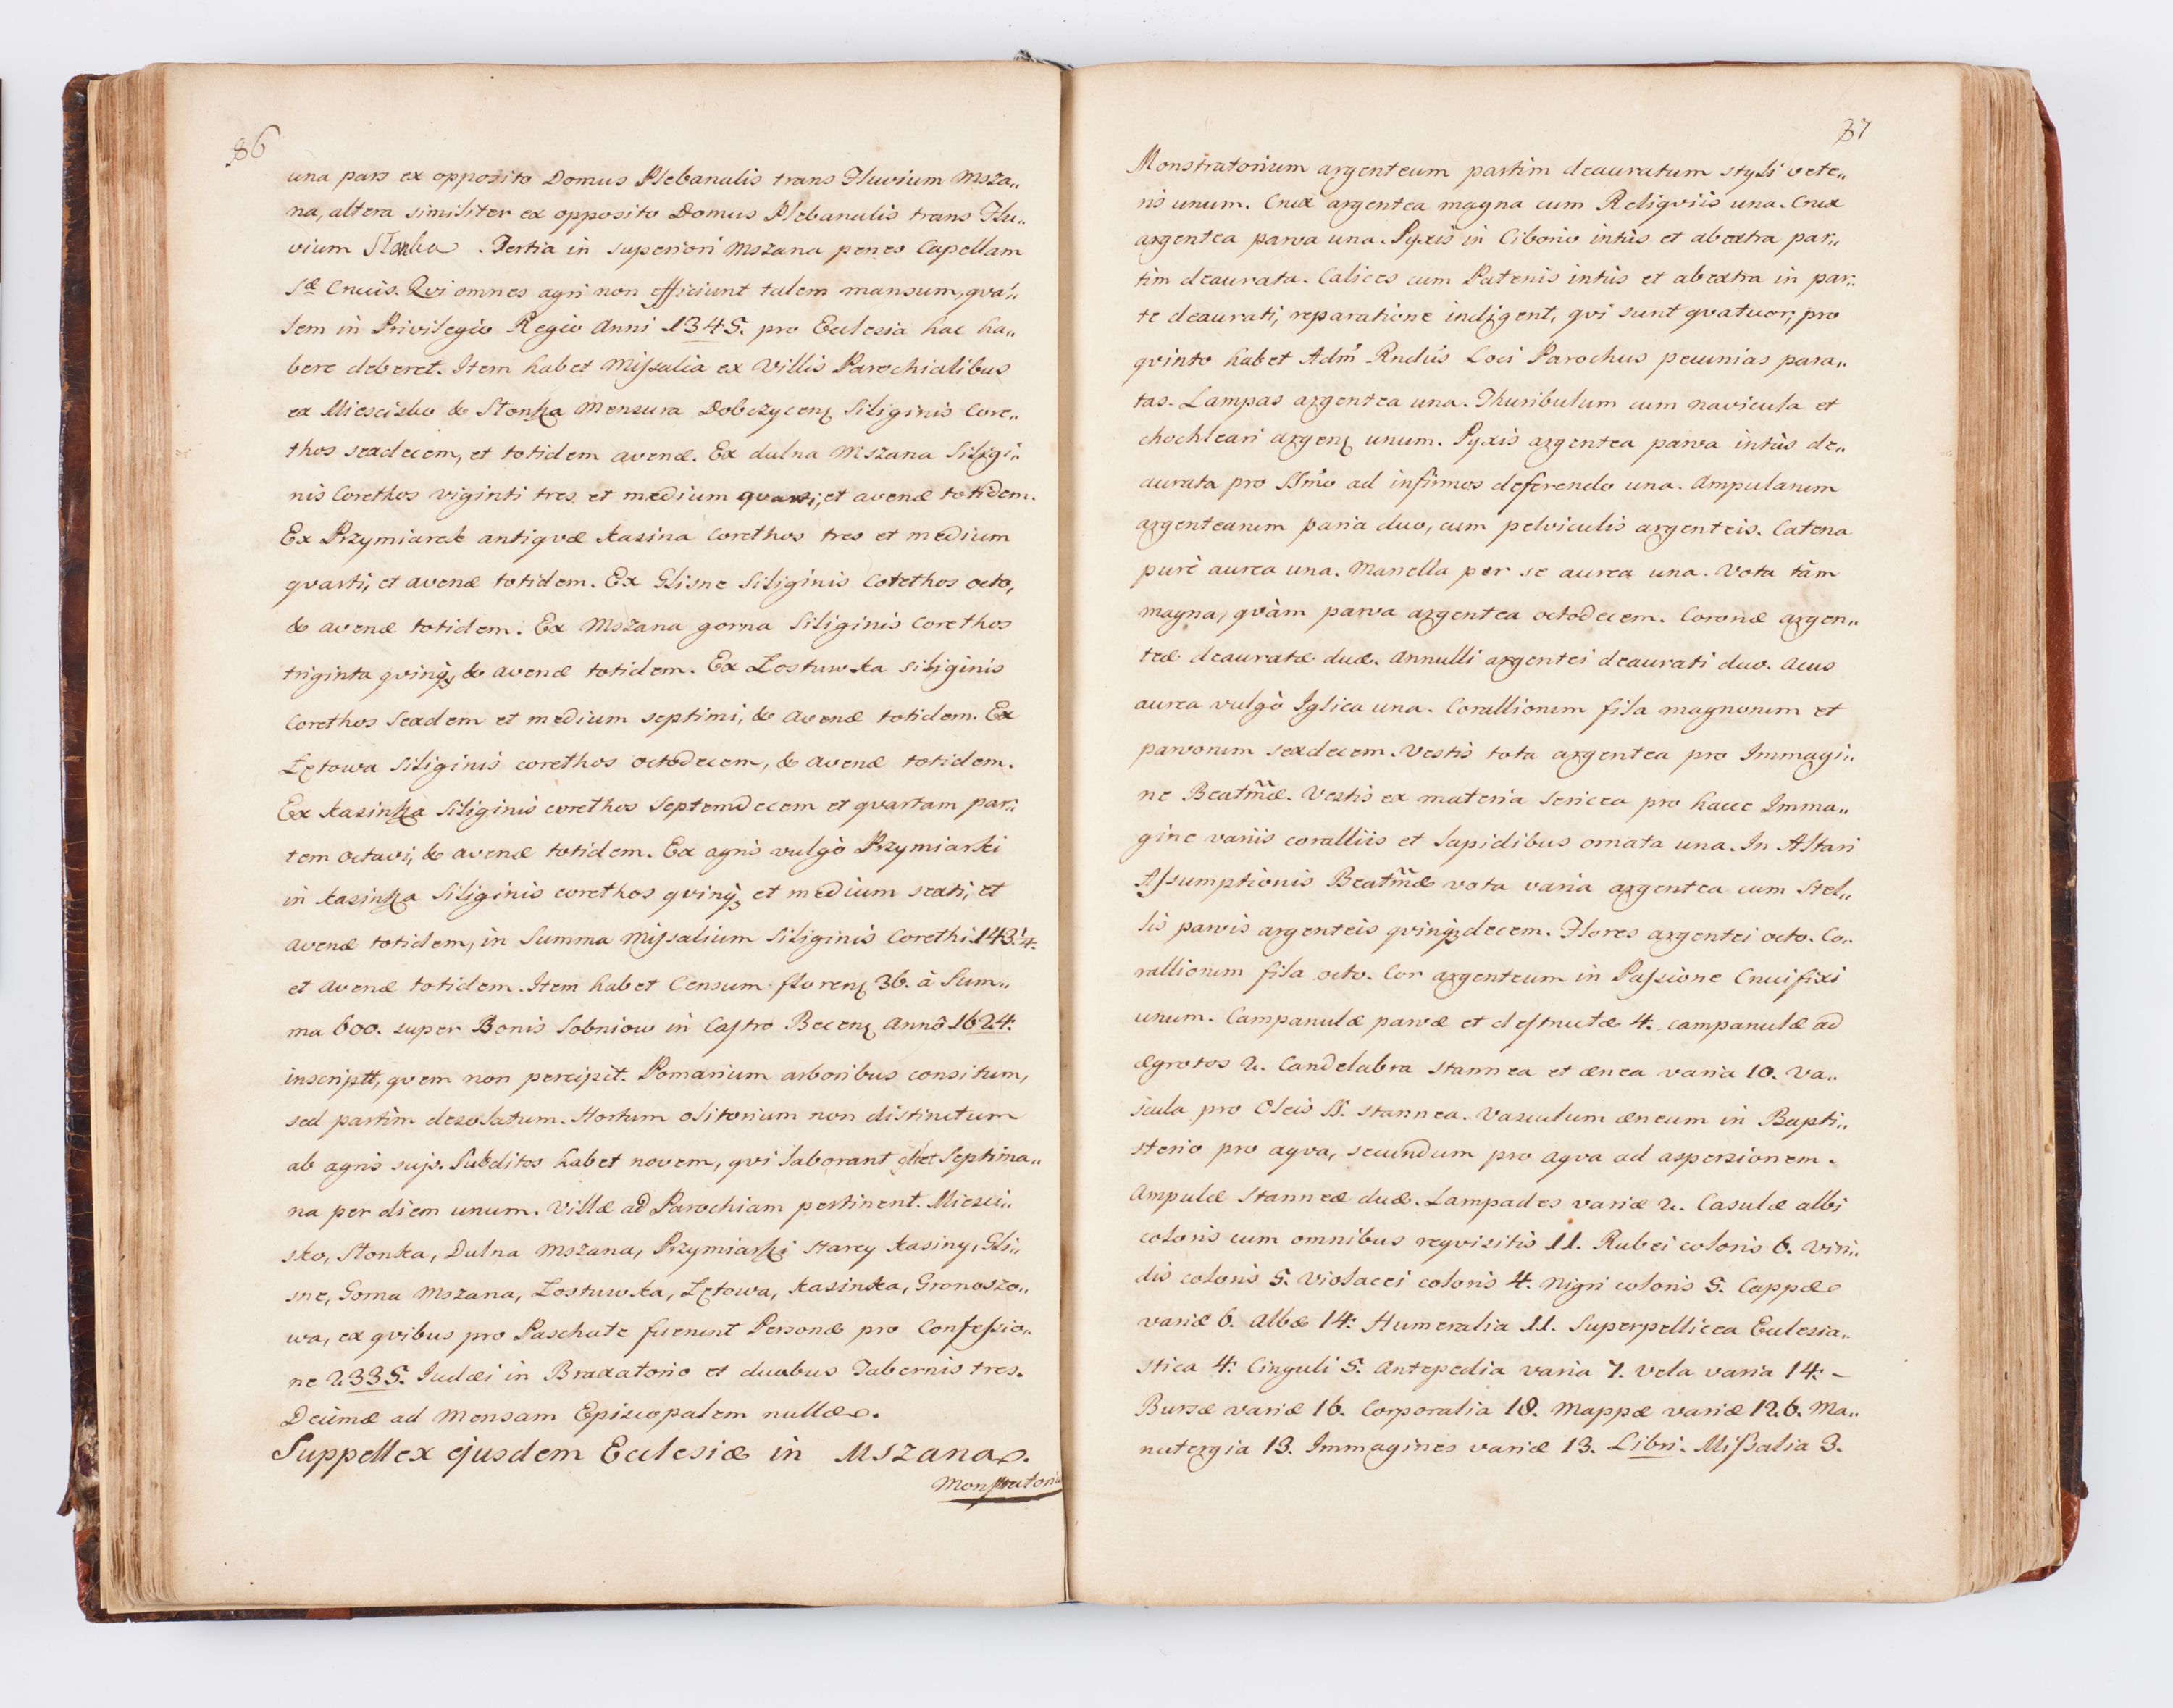 86
una pars ex opposito Domus Plebanalis trans Fluvium Msza„
na, altera similiter ex opposito Domus Plebanalis trans Flu„
vium Słonka. Tertia in superiori Mszana penes Capellam
Sæ Crucis. Qvi omnes agri non efficiunt talem mansum, qva„
lem in Privilegio Regio Anni 1345. pro Ecclesia hac ha„
bere deberet. Item habet Missalia ex Villis Parochialibus
ex Miescisko & Słonka mensura Dobczycen: Siliginis Core„
thos sexdecem, et totidem avenæ. Ex dulna Mszana Siligi„
nis Corethos viginti tres et medium quarti, et avenæ totidem.
Ex Przymiarek antiqvæ Kasina Corethos tres et medium
qvarti, et avenæ totidem. Ex Glisne Siliginis Cotethos octo,
& avenæ totidem. Ex Mszana gorna Siliginis Corethos
triginta qvinq; & avenæ totidem. Ex Łostuwka siliginis
Corethos Sexdem et medium septimi, & avenæ totidem. Ex
Lętowa Siliginis corethos octodecem, & avenæ totidem.
Ex Kasinka Siliginis corethos Septemdecem et qvartam par„
tem octavi, & avenæ totidem. Ex agris vulgò Przymiarki
in Kasinka Siliginis corethos qvinq; et medium sexti, et
avenæ totidem, in Summa Missalium Siliginis Corethi 143 1/4.
et avenæ totidem. Item habet Censum floren: 36. à Sum„
ma 600. super Bonis Sobniow in Castro Becen: Annô 1624.
inscriptt, qvem non percipit. Pomarium arboribus consitum,
sed partim desolatum. Hortum olitorium non distinctum
ab agris sujs. Subditos habet novem, qvi laborant qlĩbet Septima„
na per diem unum. Villæ ad Parochiam pertinent. Miesci„
sko, Słonka, Dulna Mszana, Przymiarki starey Kasiny, Gli„
sne, Gorna Mszana, Łostuwka, Lętowa, Kasinka, Gronoszo„
wa, ex qvibus pro Paschate fuerunt Personæ pro Confessio„
ne 2335. Iudæi in Braxatorio et duabus Tabernis tres.
Decimæ ad Mensam Episcopalem nullæ.
Suppellex ejusdem Ecclesiæ in Mszana.
Monstratoriu
87
Monstratorium argenteum partim deauratum styli vete„
ris unum. Crux argentea magna cum Religviis una. Crux
argentea parva una. Pyxis in Ciborio intùs et abextra par„
tim deaurata. Calices cum Patenis intùs et abextra in par„
te deaurati, reparatione indigent, qvi sunt qvatuor, pro
qvinto habet Adm̃ Rndũs Loci Parochus pecunias para„
tas. Lampas argentea una. Thuribulum cum navicula et
chochleari argen: unum. Pyxis argentea parva intùs de„
aurata pro SSm̃o ad infirmos deferendo una. Ampularum
argentearum paria duo, cum pelviculis argenteis. Catena
purè aurea una. Manella per se aurea una. Vota tàm
magna, qvàm parva argentea octodecem. Coronæ argen„
teæ deauratæ duæ. Annulli argentei deaurati duo. Acus
aurea vulgò Iglica una. Corallionum fila magnorum et
parvorum sexdecem. Vestis tota argentea pro Immagi„
ne Beatm̃æ. Vestis ex materia Sericea pro hacce Imma„
gine variis coralliis et lapidibus ornata una. In Altari
Assumptionis Beatm̃æ vota varia argentea cum Stel„
lis parvis argenteis qvinq;decem. Flores argentei octo. Co„
rallionum fila octo. Cor argenteum in Passione Crucifixi
unum. Campanulæ parvæ et destructæ 4. campanulæ ad
ægrotos 2. Candelabra stannea et ænea varia 10. Va„
scula pro Oleis SS. stannea. Vasculum æneum in Bapti„
sterio pro aqva, secundum pro aqva ad aspersionem.
Ampulæ Stanneæ duæ. Lampades variæ 2. Casulæ albi
coloris cum omnibus reqvisitis 11. Rubei coloris 6. Viri„
dis coloris 5. Violacei coloris 4. Nigri coloris 5. Cappæ
variæ 6. Albæ 14. Humeralia 11. Superpellicea Ecclesia„
stica 4. Cinguli 5. Antepedia varia 7. Vela varia 14. –
Bursæ variæ 16. Corporalia 18. Mappæ variæ 126. Ma„
nutergia 13. Immagines variæ 13. Libri. Missalia 3.